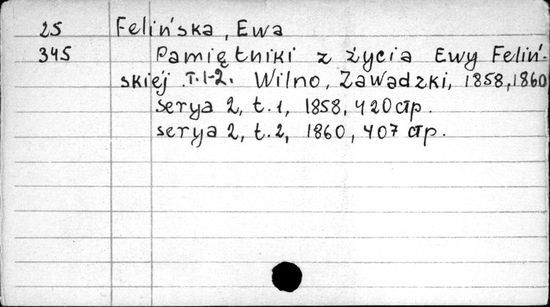 25 Felińska, Ewa
345 Pamiętniki z życia Ewy Feliń-
skiéj. T. 1-2. Wilno, Zawadzki, 1858, 1860
serya 2, t. 1, 1858, 420 стр.
serya 2, t. 2, 1860, 407 стр.